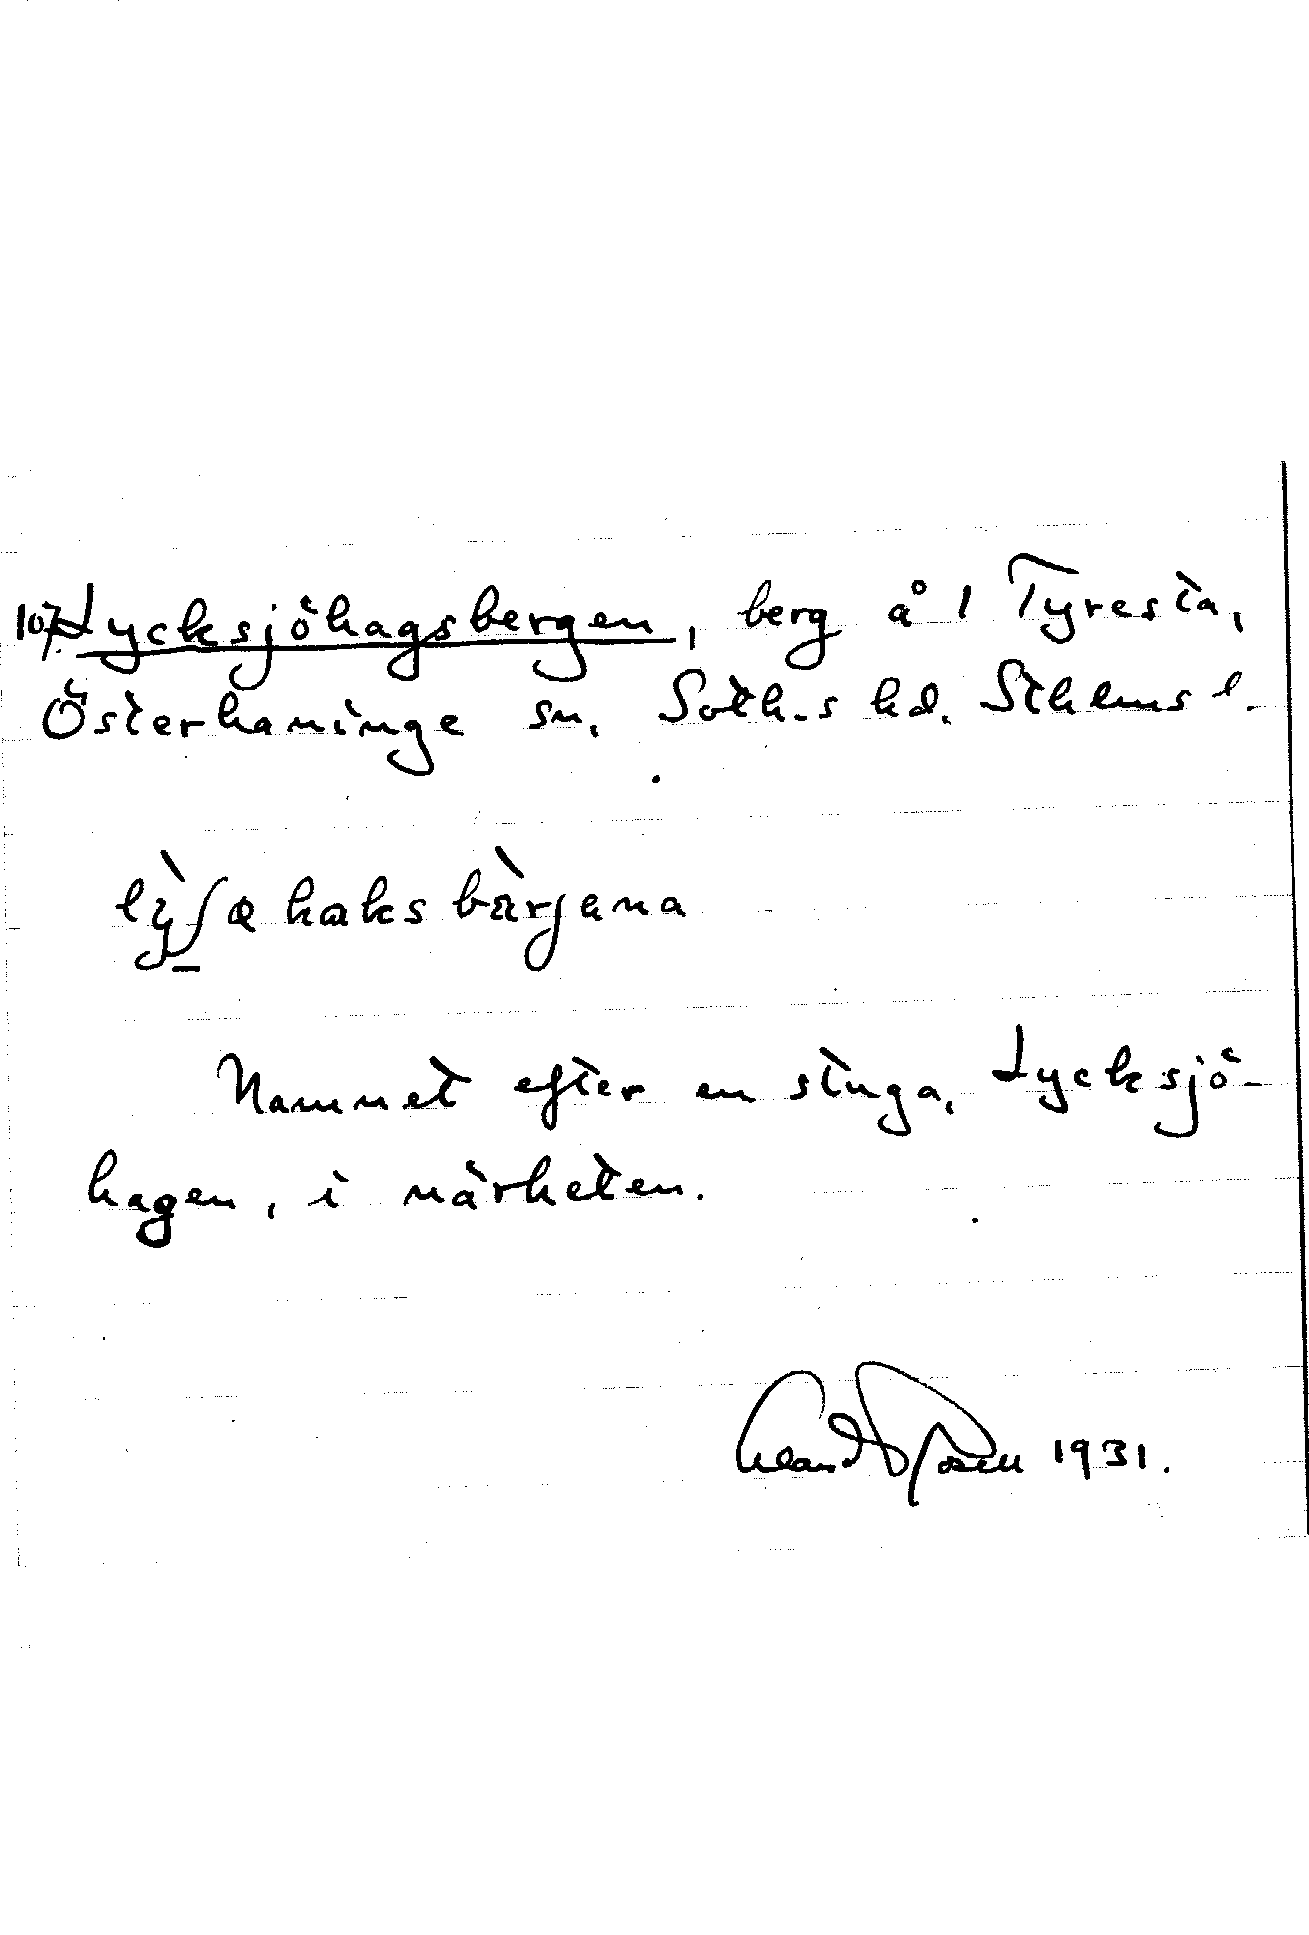 107. Lycksjöhagsbergen, berg å 1 Tyresta,
Österhaninge sn. Soth.s hd. Sthlms l.
lỳʃæ haksbàrjana
Namnet efter en stuga, Lycksjö-
hagen, i närheten.
1931.